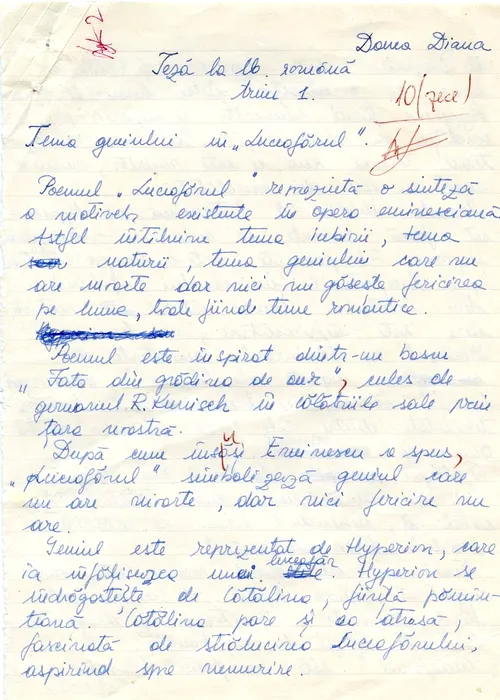 Donea Diana
Teză la lb. română
trim 1.
10 (zece)
Tema geniului în „Luceafărul".
Poemul „Luceafărul" reprezintă o sinteză
a motivelor existente în opera eminesciană
Astfel întîlnim tema iubirii, tema
naturii, tema geniului care nu
are moarte dar nici nu găsește fericirea
pe lume, toate fiind teme romantice.
Poemul este inspirat dintr-un basm
„Fata din grădina de aur", cules de
germanul R. Kunisch în călătoriile sale prin
țara noastră.
După cum însuși Eminescu a spus,
„Luceafărul" simbolizează geniul care
nu are moarte, dar nici fericire nu
are.
Geniul este reprezentat de Hyperion, care
ia înfățișarea unui luceafăr. Hyperion se
îndrăgostește de Cătălina, ființă pămîn-
teană. Cătălina pare și ea atrasă,
fascinată de strălucirea Luceafărului,
aspirînd spre nemurire.